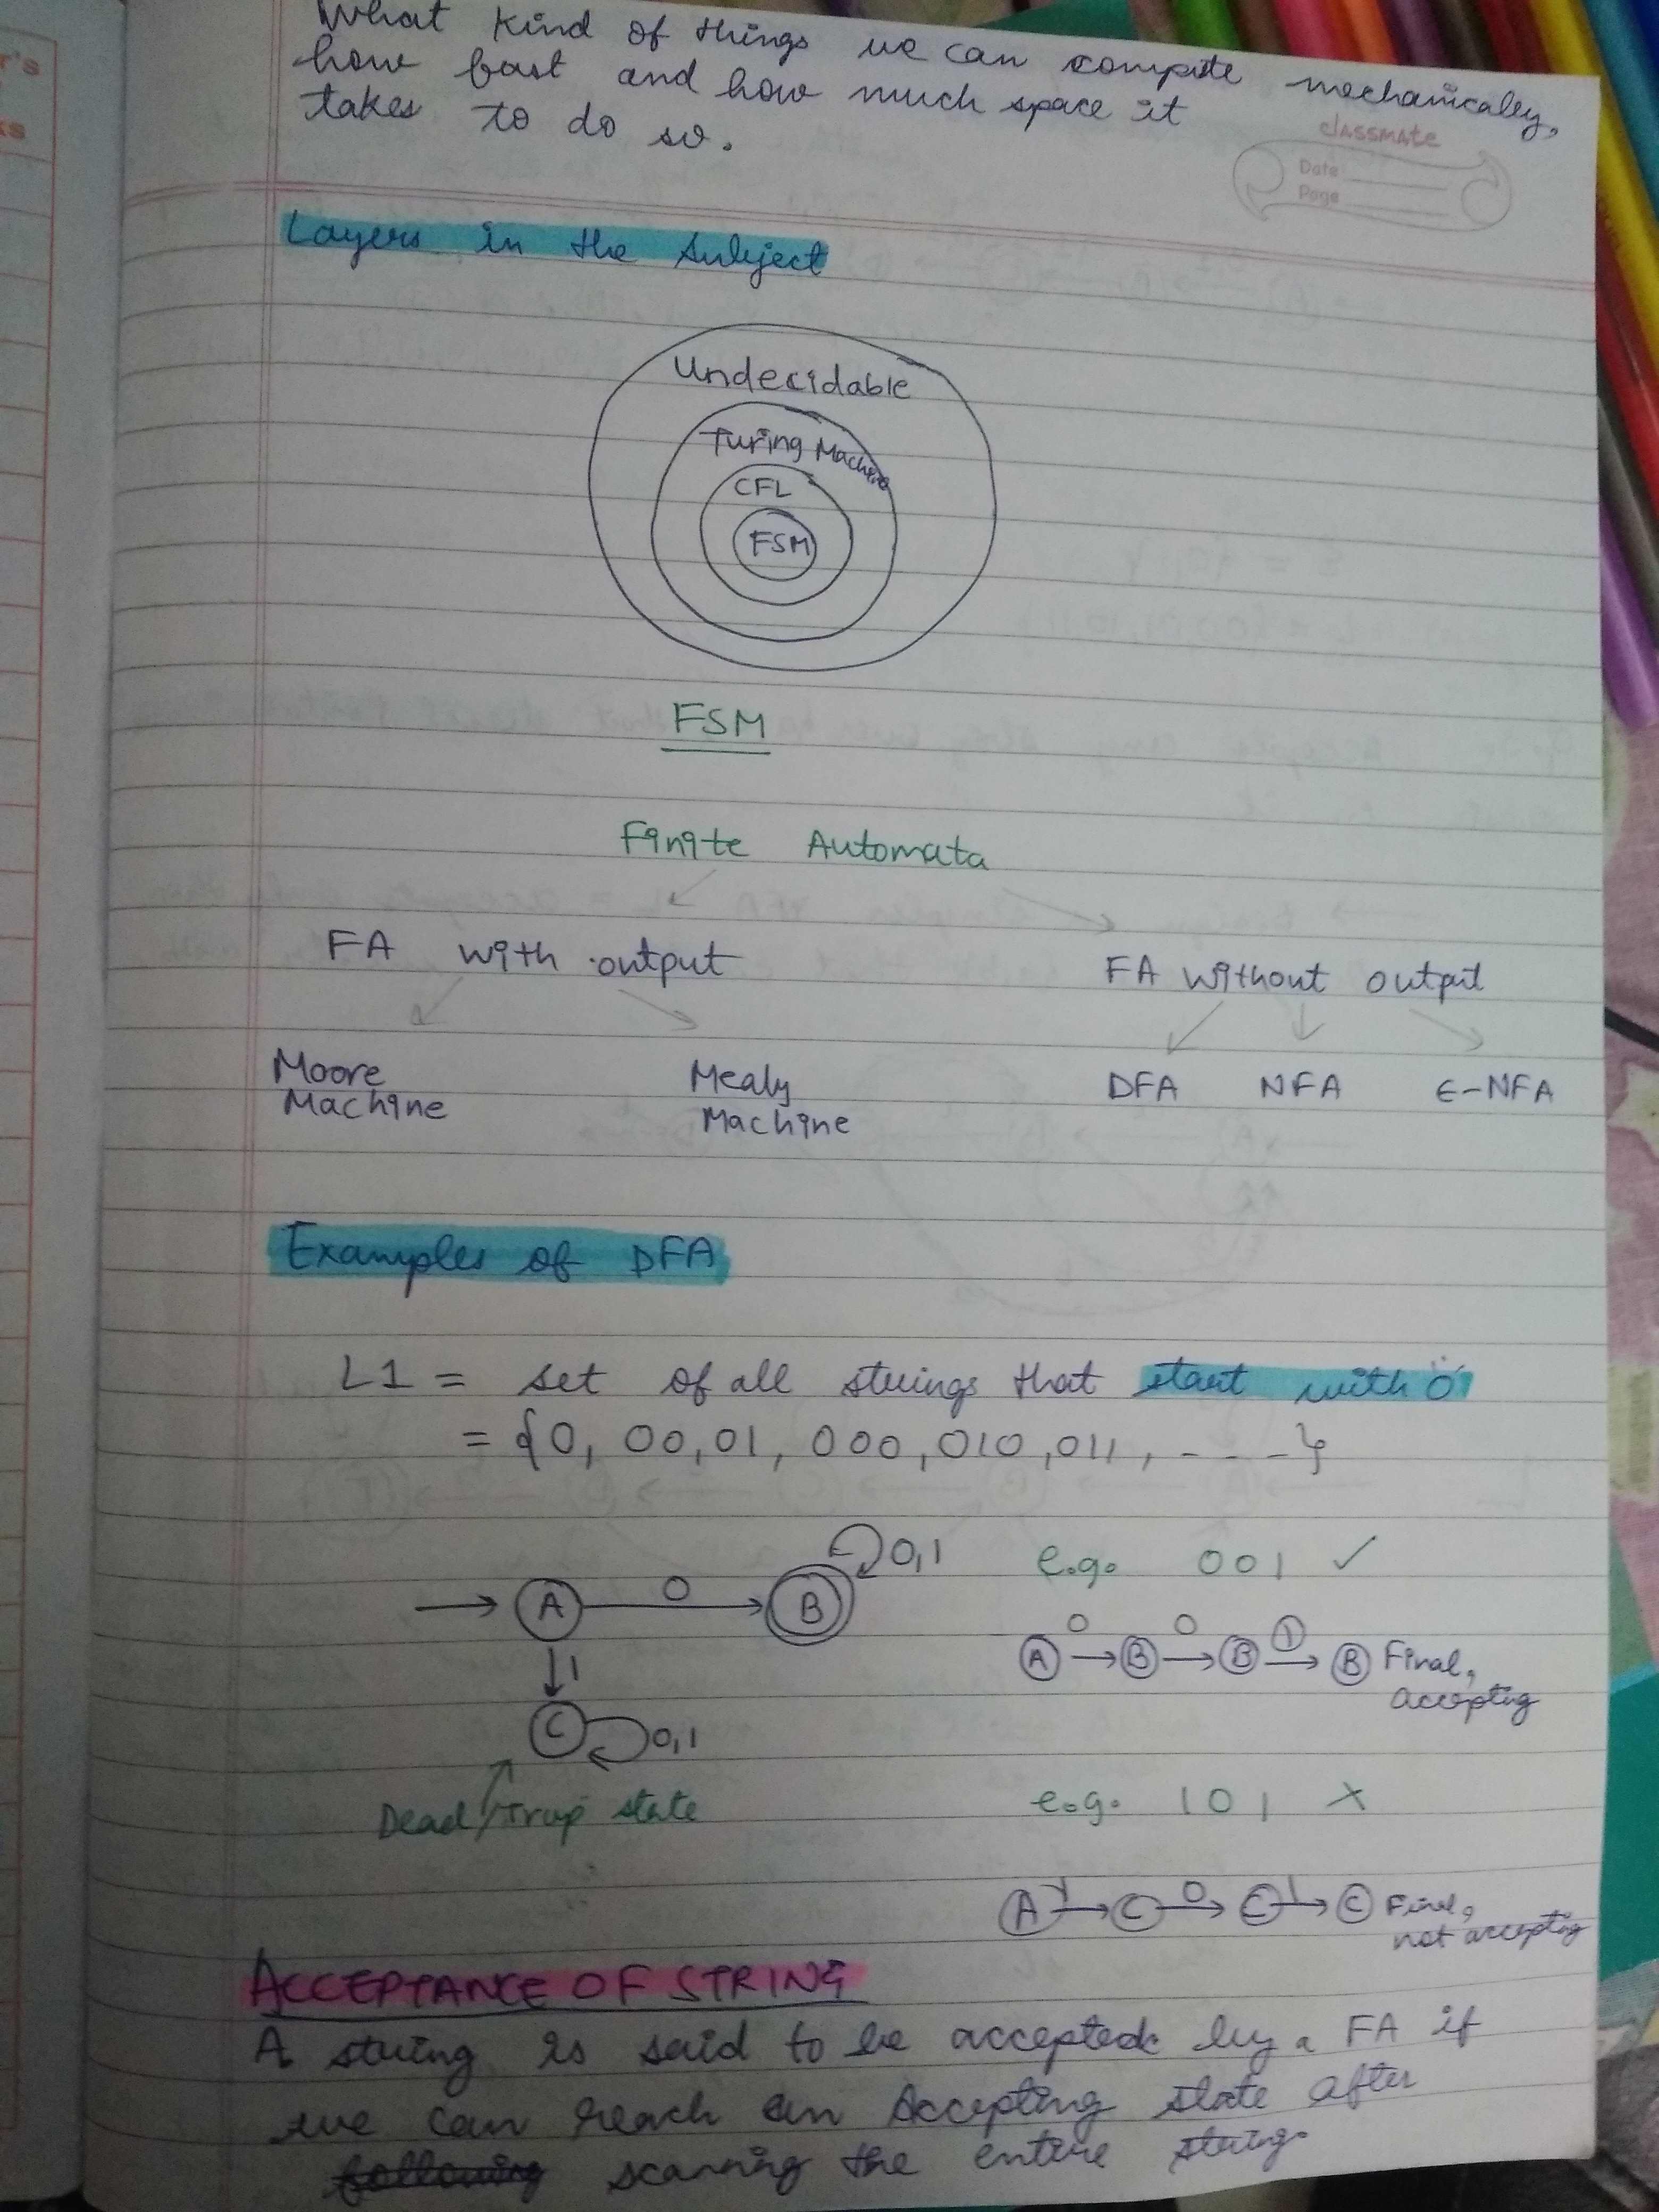 What kind of things we can compute mechanically,
how fast and how much space it
takes to do so.
classmate
Date
Page
Layers in the Subject
Undecidable
Turing Machine
CFL
FSM
FSM
Finite Automata
FA with output
FA without output
Moore
Machine
Mealy
Machine
DFA NFA ϵ-NFA
Examples of DFA
L1 = set of all strings that start with '0'
= {0, 00, 01, 000, 010, 011, - - - }
A 0 B 0,1
1
C 0,1
Dead/Trap state
e.g. 001 ✓
A 0 B 0 B 1 B Final,
accepting
e.g. 101 ✗
A 1 C 0 C 1 C Final,
not accepting
ACCEPTANCE OF STRING
A string is said to be accepted by a FA if
we can reach an Accepting state after
following scanning the entire string.